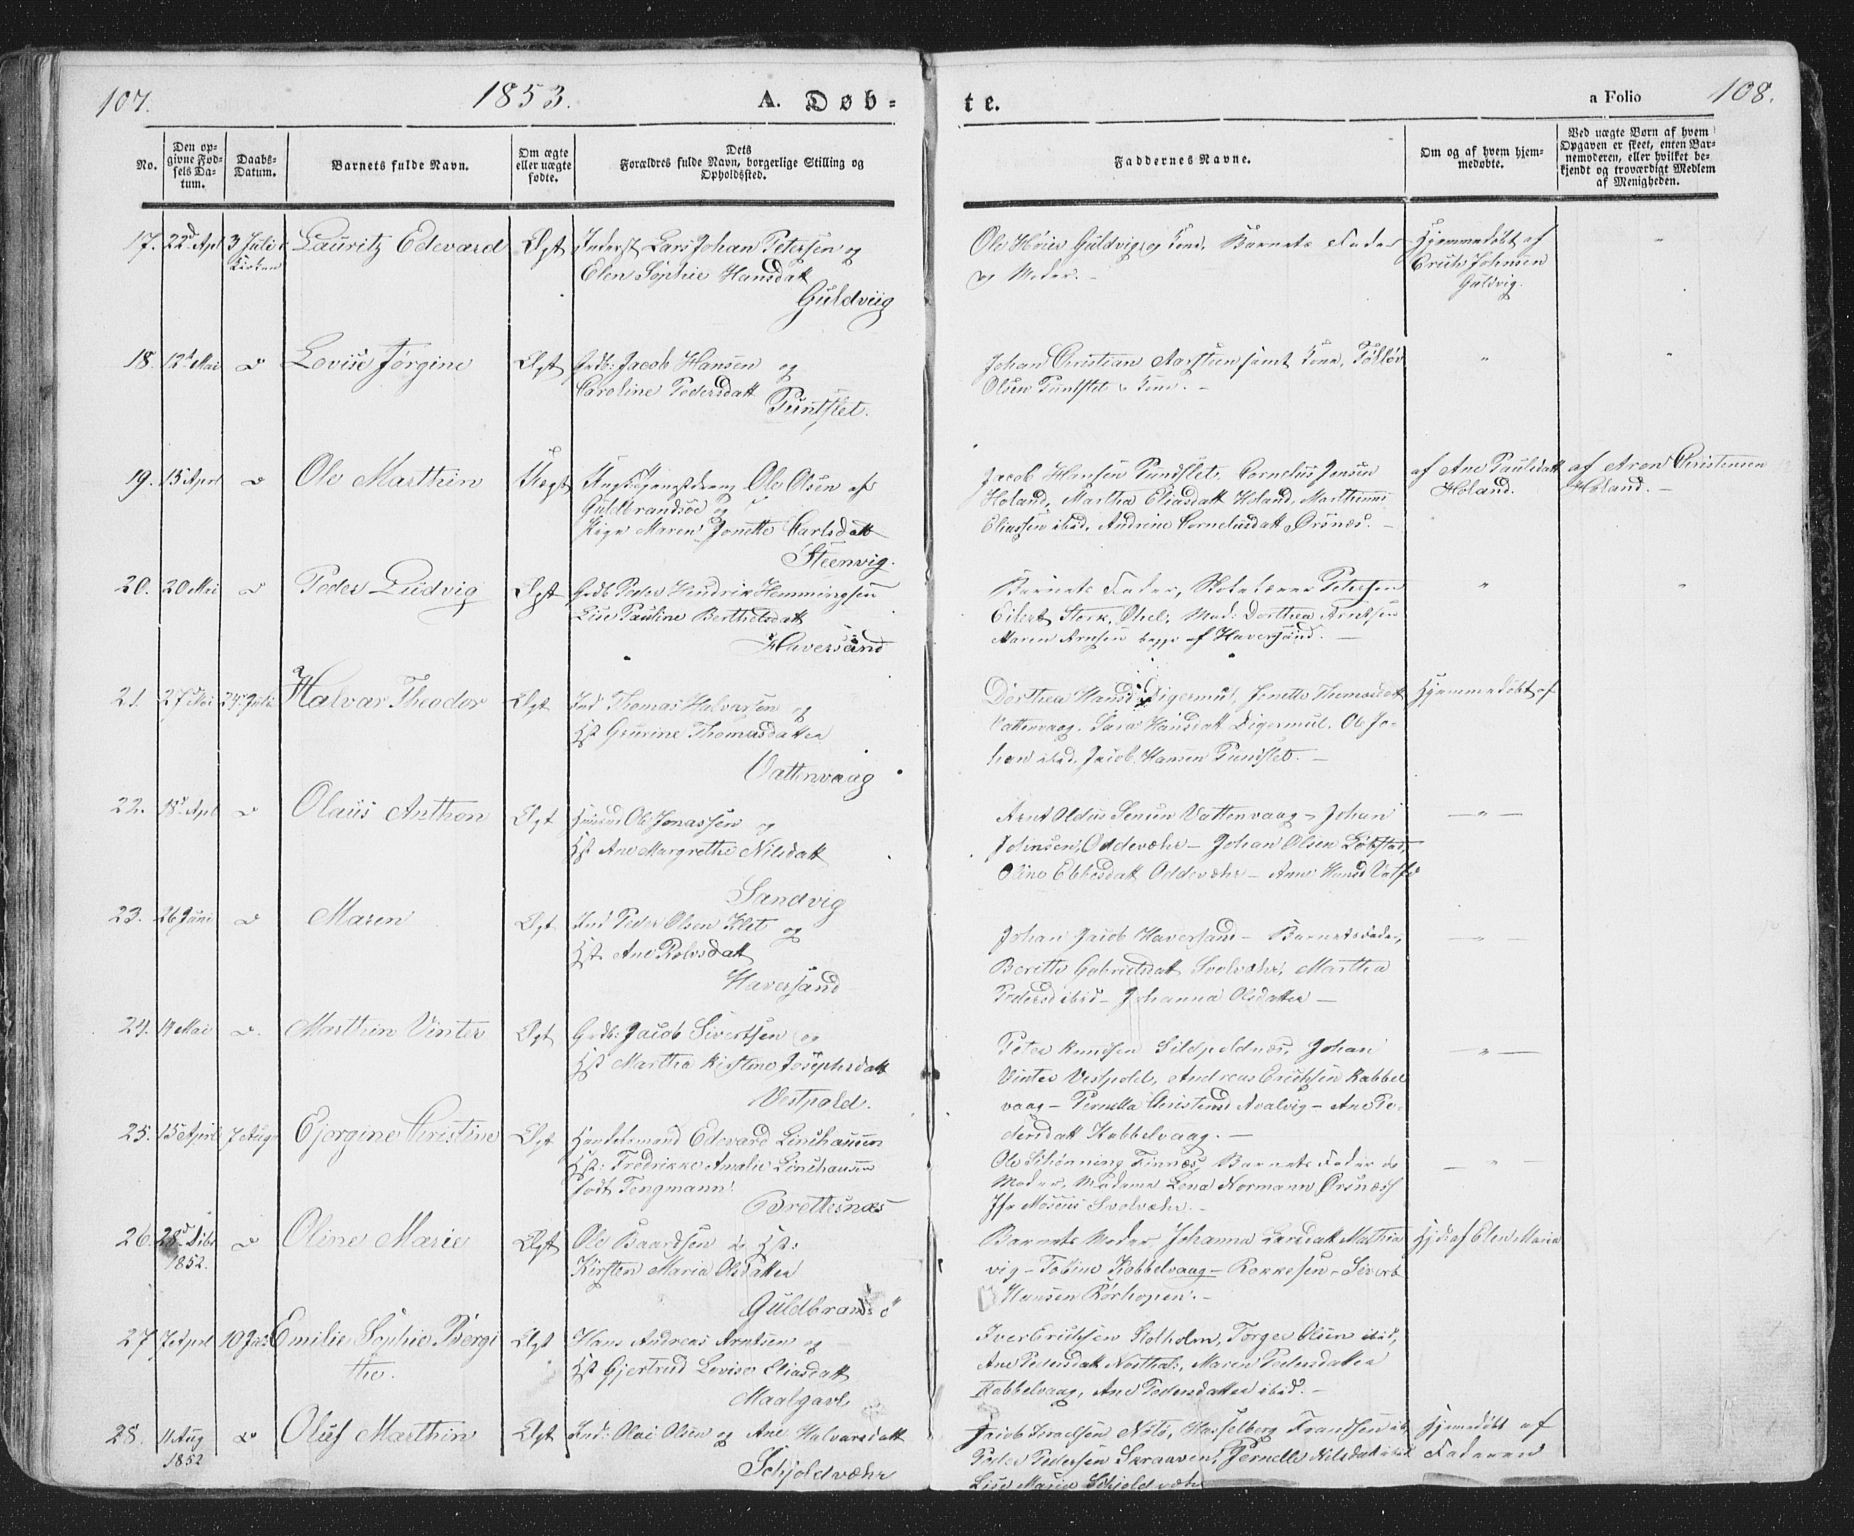 107.
1853.
A. Døb-
te.
a Folio
108.
No.
Den op-
givne Fød-
sels Da-
tum.
Daabs-
Datum.
Barnets fulde Navn.
Om ægte
eller uægte
fødte.
Dets
Forældres fulde Navn, borgerlige Stilling og
Opholdssted.
Faddernes Navne.
Om og af hvem hjem-
medøbte.
Ved uægte Børn af hvem
Opgaven er skeet, enten Bar-
nemoderen, eller hvilket be-
kjendt og troværdigt Medlem
af Menigheden.
17. 22d Apl 3 Juli Lauritz Edevard Ægt Inderst Lars Johan Petersen og
Kirken
Elen Sophie Hansdatt
Guldviig
Ole Høier Guldvig og Kone, Barnets Fader
og Moder. -
Hjemmedøbt af
Erich Johnsen
Guldvig.
18. 12t Mai Lovise Jørgine Ægt Grdb: Jacob Hansen og
Caroline Pedersdatt
Pundslet.
Johan Christian Aarsteen samt Kone,
Olsen Pundslet & Kone. -
19. 15 Aprl Ole Marthin Uægt Ole Olsen af
Guldbrandsøe og
Pige Maren Jonette Carlsdatt
Steenvig.
Jacob Hansen Pundslet, Cornelius Jensen
Høland, Martha Eliasdatt Høland, Marthinus
Eliassen ibid, Andrine Corneliusdatt Ørsnes. -
af Ane Paulsdatt
Høland.
af Aron Christensen
Høland. -
20. 20 Mai Peder Ludvig Ægt Grdb Peder Hendrik Hemmingsen
Lise Pauline Berthelsdatt
Haversand
Barnets Fader, Skolelærer Petersen
Eilert Stork, Mad: Dorthea Arntsen
Maren Arntsen begge af Haversand. -
21. 27d Mai 24d Juli Halvar Theodor Ægt Ind Thomas Halvorsen og
Hst Gurine Thomasdatter
Vattenvaag
Dorthea Hansd Digermul, Jonette Thomasdatt
Vattenvaag, Sara Hansdatt Digermul. Ole Jo-
han ibid, Jacob Hansen Pundslet. -
Hjemmedøbt af
22. 18d Apl Olaus Anthon Ægt Ole Jonassen og
Hst Ane Margrethe Nilsdatt
Sandvig
Arnt Oldus Jensen Vattenvaag - Johan
Johnsen, Oddevæhr - Johan Olsen
Oline Ebbesdatt Oddevæhr - Ane Hansd
23. 26 Juni Maren Ægt Ind Peder Olsen Klet og
Hst. Ane Rolvsdatt
Haversand
Johan Jacob Haversand - Barnets Fader,
Berithe Gabrielsdatt Svolvæhr, Martha
Pedersd ibid - Johanna Olsdatter -
24. 19 Mai Marthin Vinter Ægt Grdb: Jacob Sivertsen og
Hst Martha Kirstine Josephsdatt
Vestpold.
Peter Knudsen Sildpoldnes, Johan
Vinter Vestpold, Andreas Erichsen Kabbel
vaag - Pernella Christensd - Ane Pe-
dersdatt Kabbelvaag. -
25. 15 Aprl 7 Aug Gjorgine Christine Ægt Handelsmand Edevard Linchausen
Hst: Fredrikke Amalie Linchausen
født Tengmann.
Brettesnæs
Ole Schønning Finnæs, Barnets Fader &
Moder, Madame Lena Normann Ørsnæs
Svolvæhr. -
26. 28d Dcbr Oline Marie Ægt Ole Baardsen & Hst:
1852.
Kirsten Maria Olsdatter
Guldbrandsø
Barnets Moder Johanna Larsdatt Mathia
vig - Tobine Kabbelvaag - Rokkesen - Sivert
Hansen Rørhopen. -
Hjd: af Elen Maria
27. 7 Aprl 10 Juli Emilie Sophie Bergi Ægt Hans Andreas Arntsen og
the.
Hst Gjertrud Lovise Eliasdatt
Maalgavl.
Iver Erichsen Skotholm, Torger Olsen ibid,
Ane Pedersdatt Maren Pedersdatter
Kabbelvaag, Ane Pedersdatter ibid. -
28. 11 Aug Oluf Marthin Ægt Ind: Olai Olsen og Ane Halvarsdatt
1852
Schjoldvæhr
Jacob Hasselberg Frandsen
Peder Pedersen Skraaven, Pernelle Nilsdatt ibid
Lise Marie Schjoldvæhr
Hjemedøbt af
Faderen